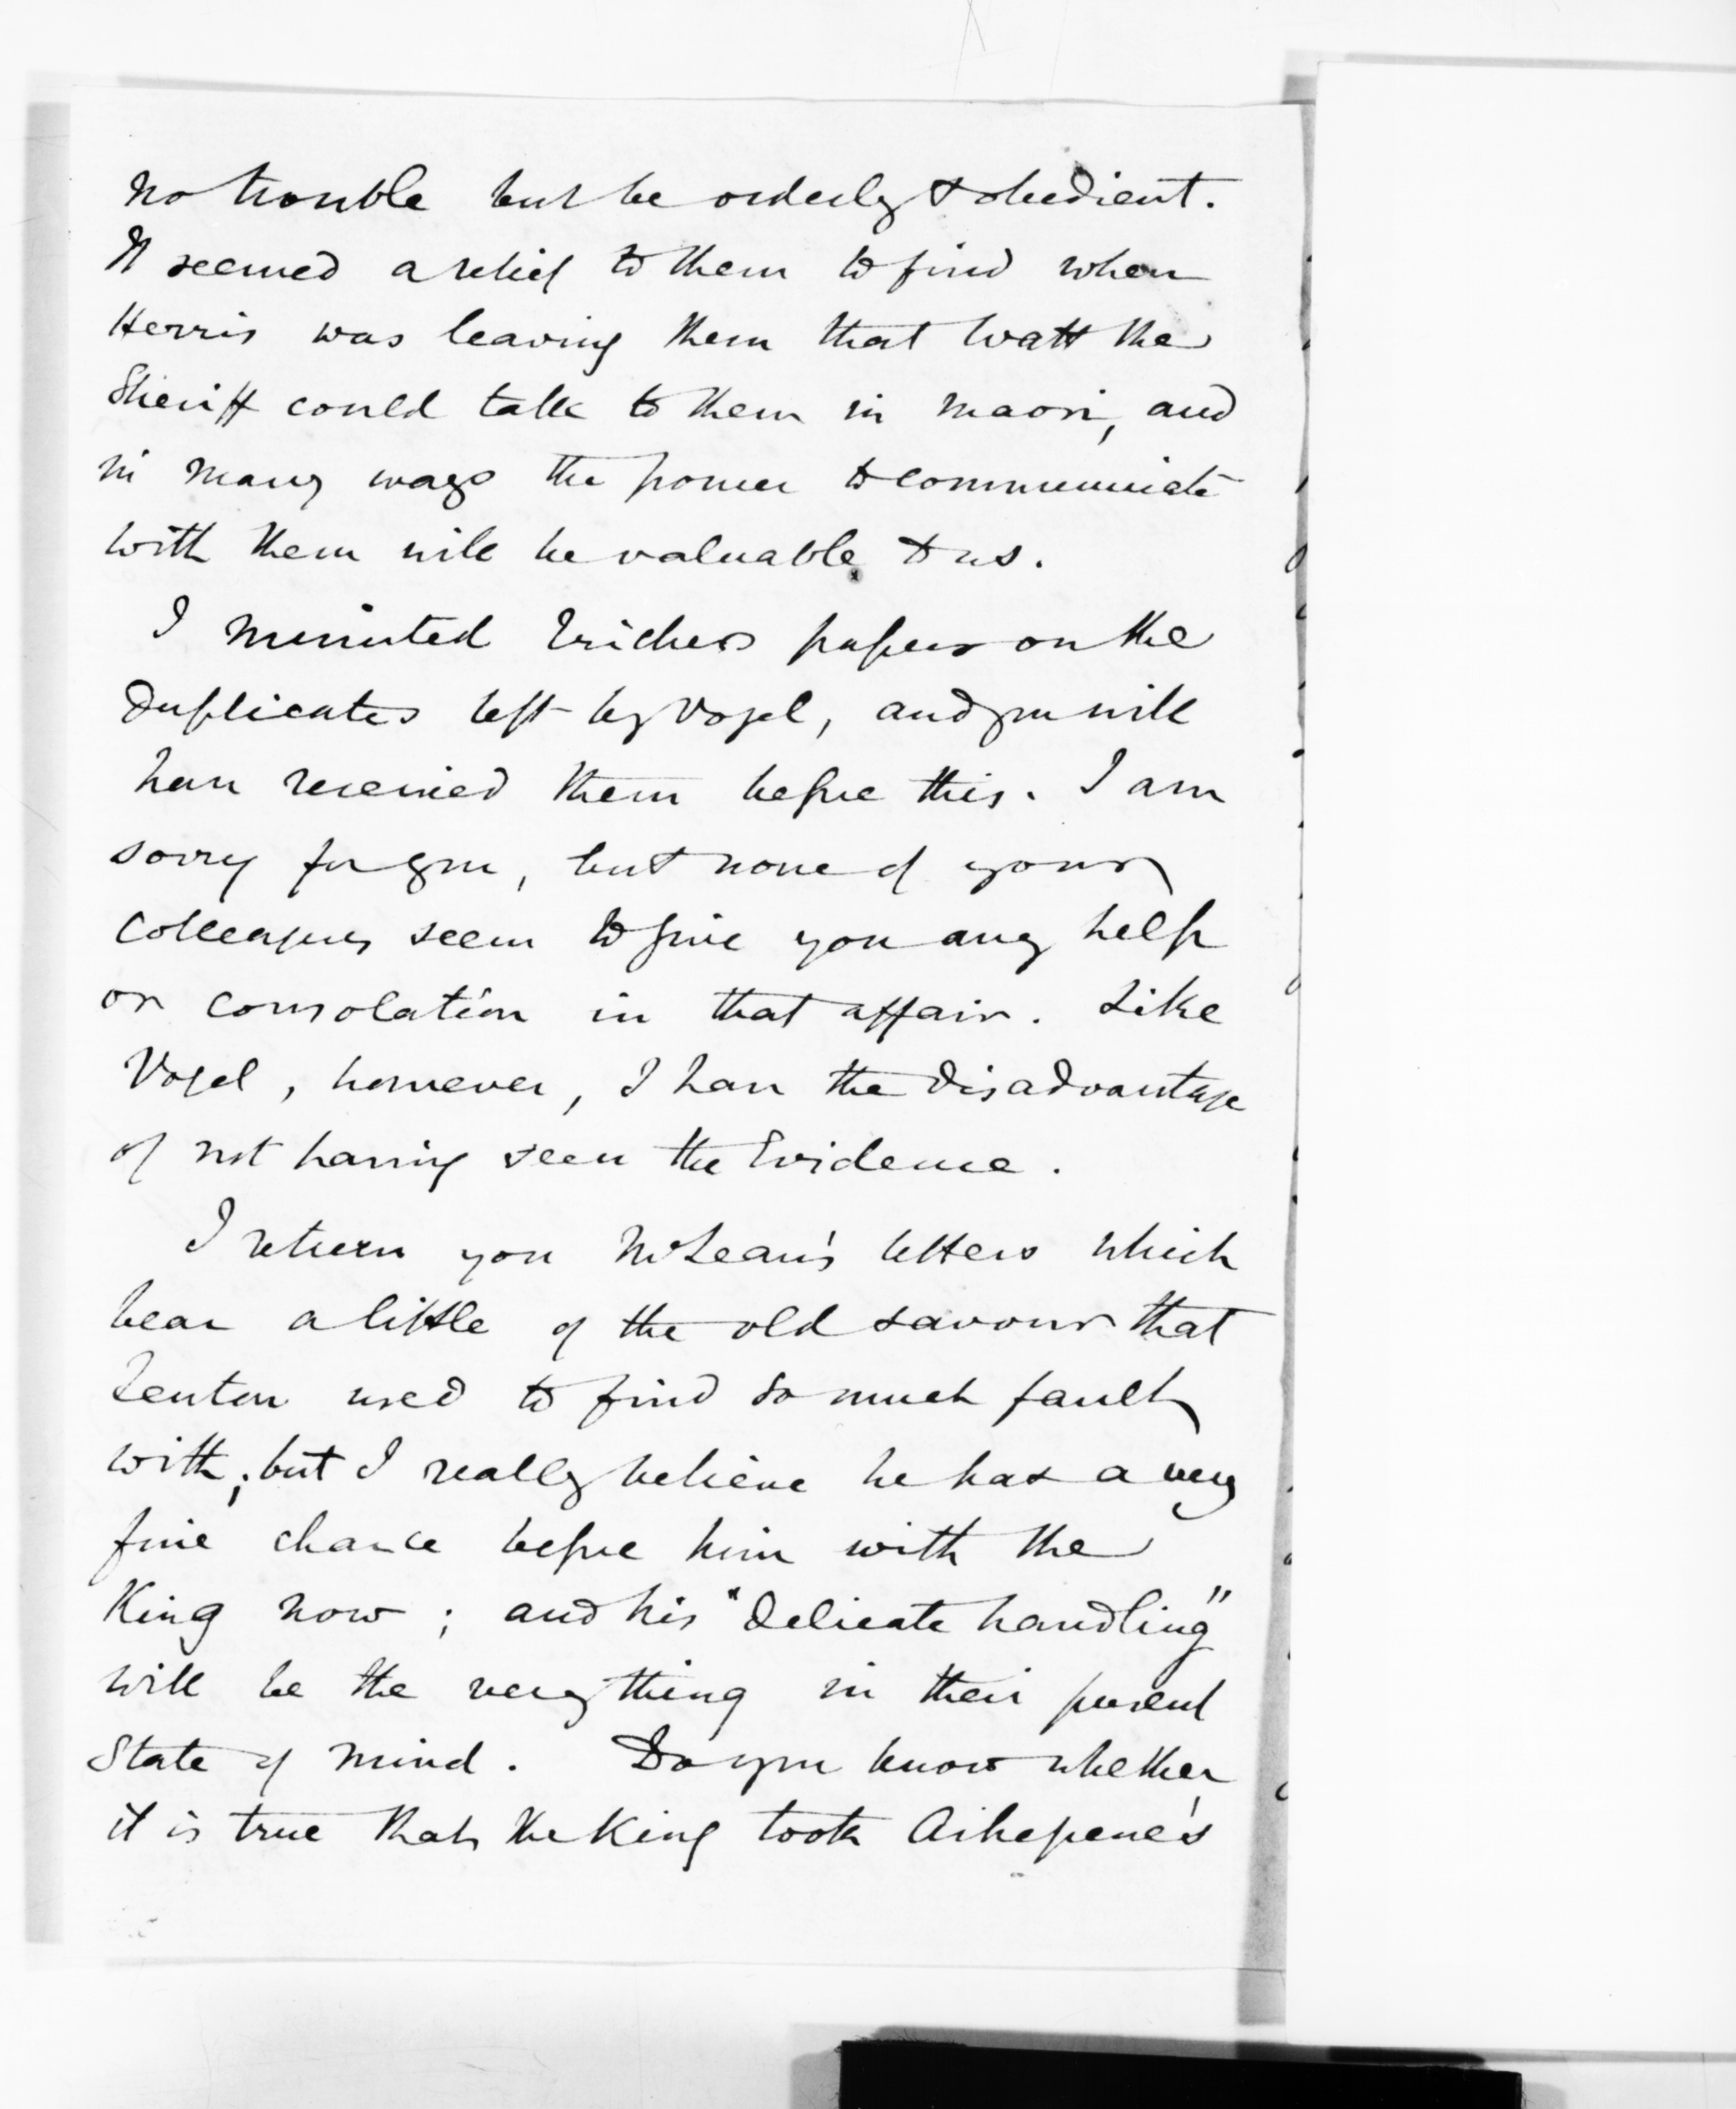 no trouble but be orderly & obedient.
It seemed a relief to them to find when
Herris was leaving them that Watt the
Sheriff could talk to them in maori, and
in many ways the power to communicate
with them will be valuable to us.
I minuted papers on the
Duplicates left by Vogel, and you will
have received them before this. I am
sorry for you, but none of your
Colleagues seem to give you any help
or consolation in that affair. Like
Vogel, however, I have the disadvantage
of not having seen the Evidence.
I return you McLean's letters which
bear a little of the old savour that
used to find so much fault
with; but I really believe he has a very
fine chance before him with the
King now; and his "delicate handling"
will be the very thing in their present
State of mind. Do you know whether
it is true that the King took Aihepene's